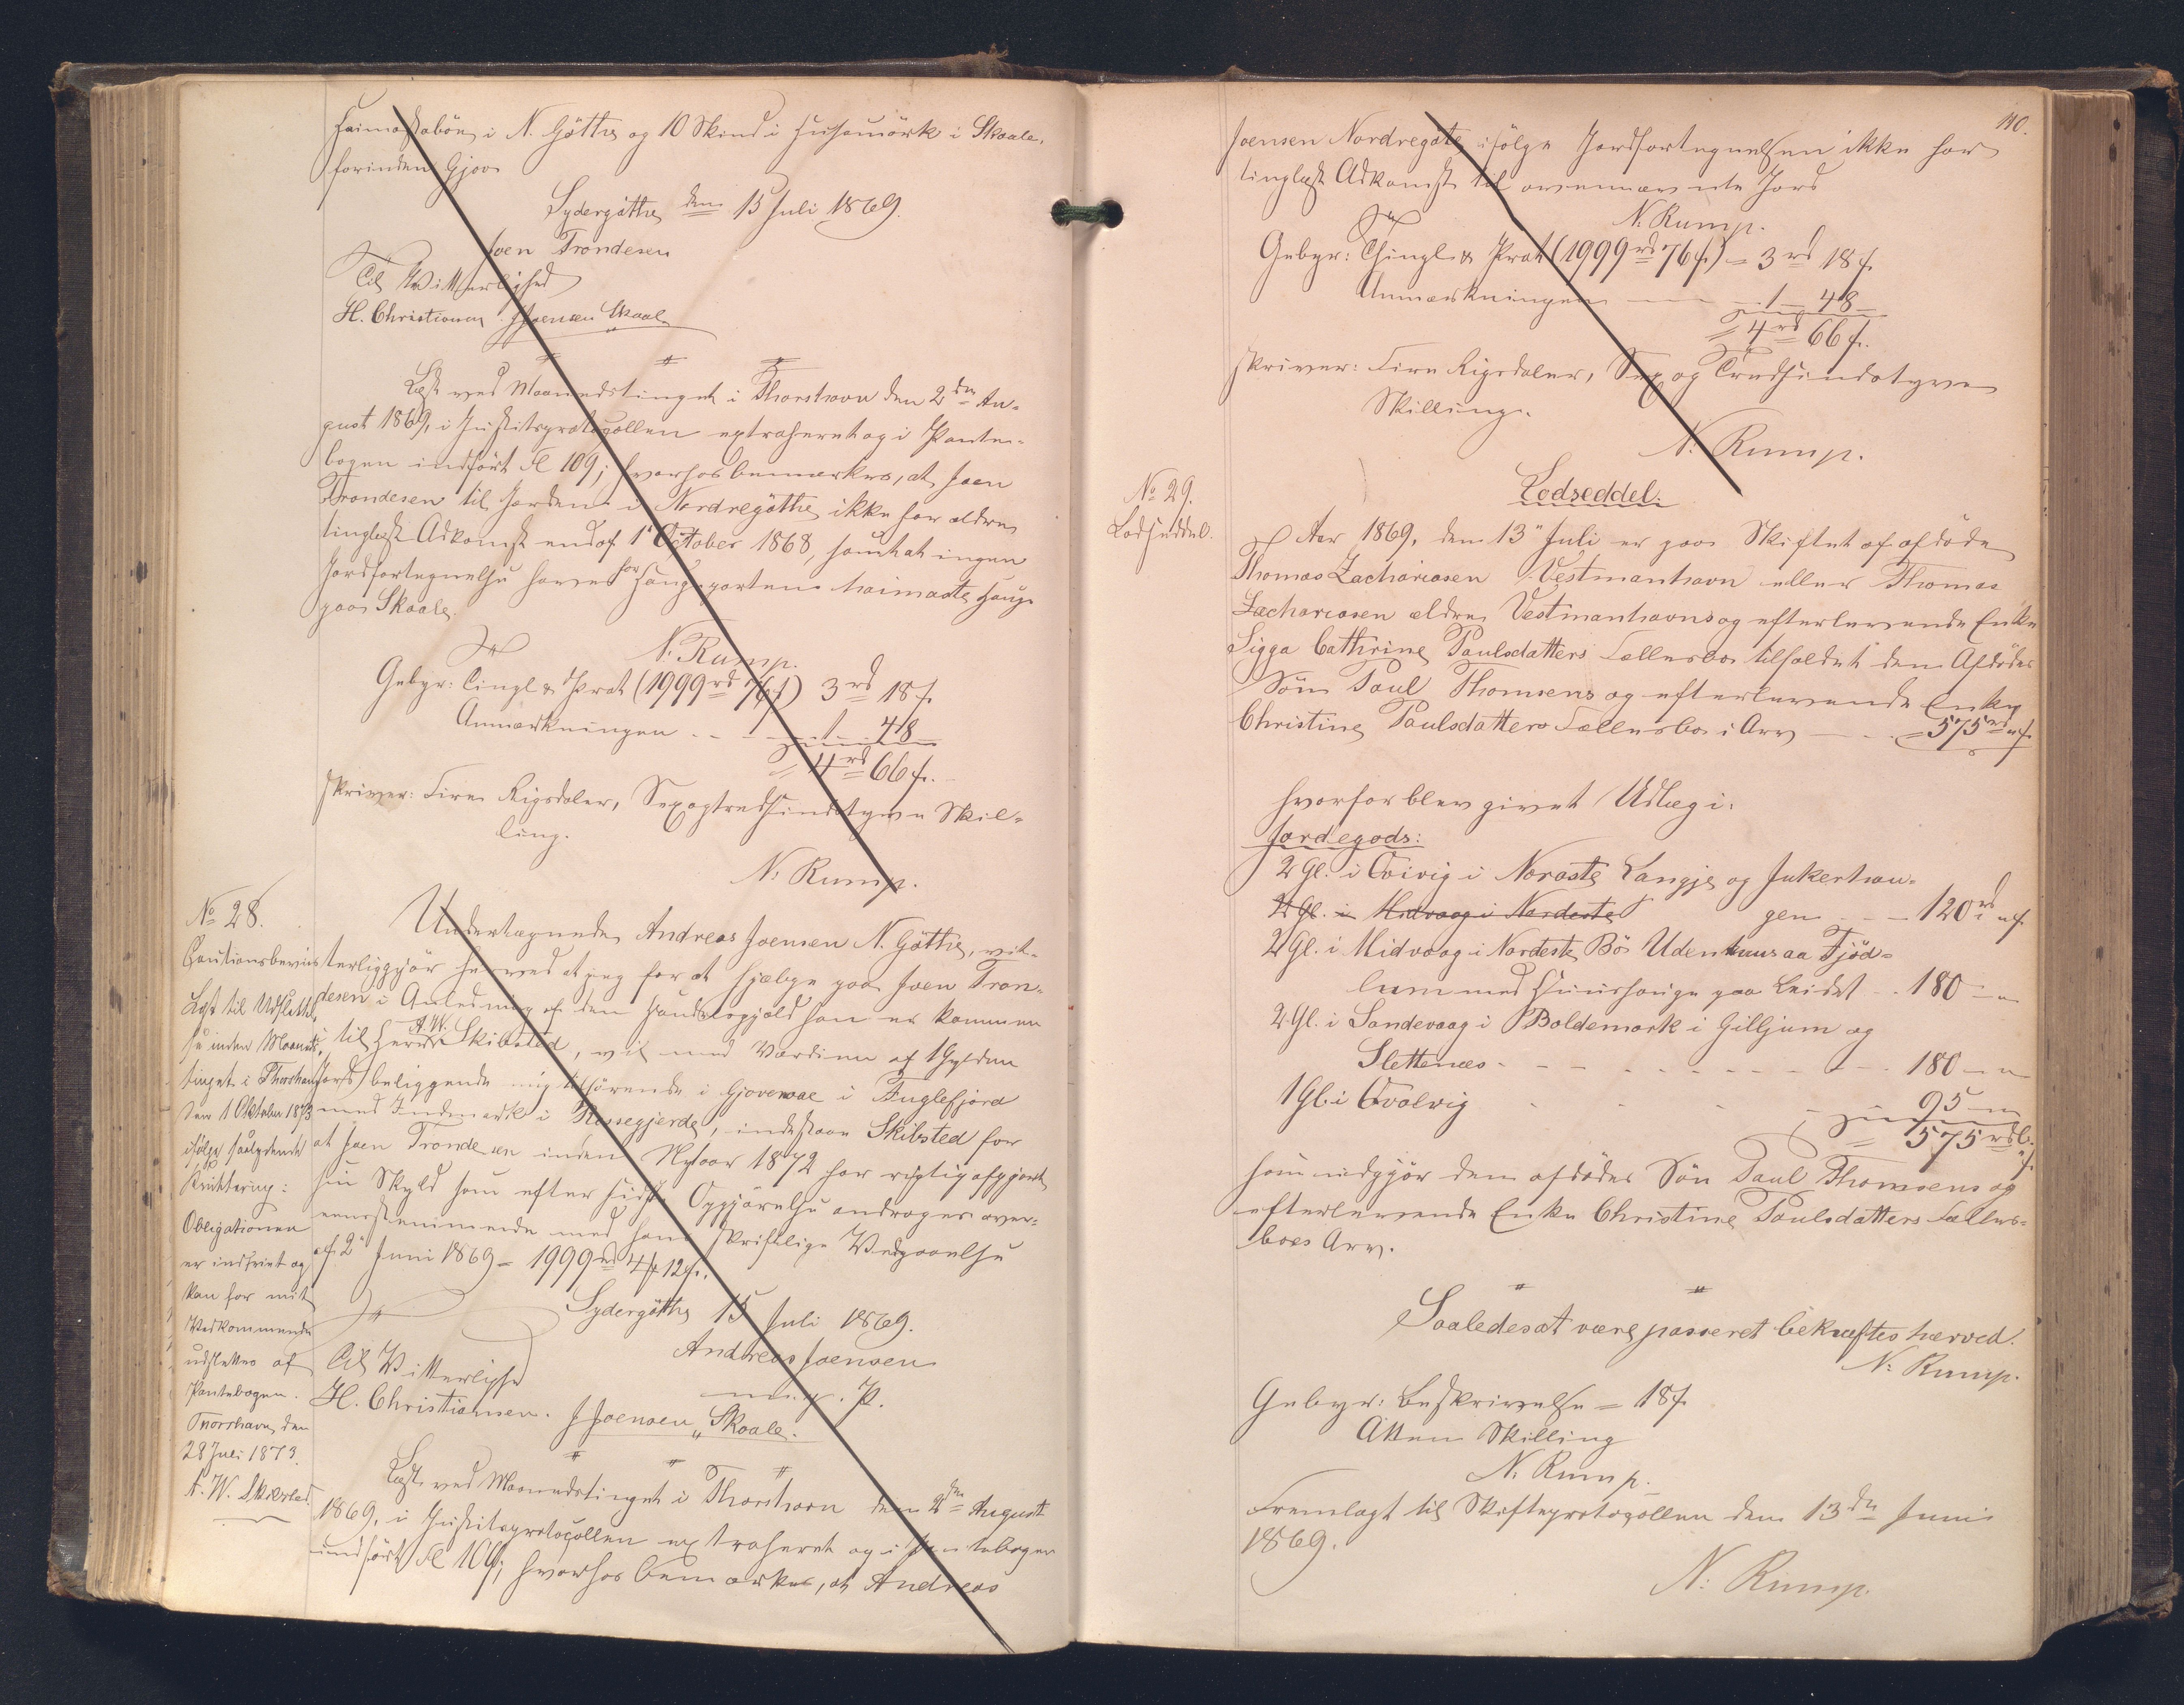 Heimastabön i N. Göthe og 10 Skind i Husemörk i Skaale,
forinden Gjov
Sydergöthe den 15 Juli 1869.
Joen Trondesen
Til Vitterlighed
H. Christiansen JJoensen Skaale
Læst ved Maanedstinget i Thorshavn den 2den Au-
gust 1869, i Justitsprotocollen extraheret og i Pante-
bogen indfört Fl 109; hvorhos bemærkes, at Joen
Trondesen til Jorden i Nordregöthe ikke har ældre
tinglæst Adkomst end af 1 October 1868, samt at ingen
Jordfortegnelse haves for Haugeparten heimaste Hauge
paa Skaale.
N. Rump.
Gebyr: Tingl & Prot (1999 rd 76 f) 3 rd 18 f.
Anmærkningen - - 1 - 48 -
= 4 rd 66 f.
skriver: Fire Rigsdaler, Sex og tredsindstyve Skil-
ling.
N. Rump.
No 28.
Cautionsbeviis
Læst til Udslettel-
se inden Maaneds-
tinget i Thorshavn
den 1 Oktober 1873
ifølge saalydende
Kvittering:
Obligationen
er indfriet og
kan for mit
Vedkommende
udslettes af
Pantebogen.
Thorshavn, den
28 Juli 1873.
A. W. Skibsted.
Undertegnede Andreas Joensen N. Göthe, vit-
terliggjör herved at jeg for at hjælpe paa Joen Tron-
desen i Anledning af den Handelsgjæld han er kommen
til Herr A.W. Skibsted, vil med Værdien af 1 Gylden
Jord beliggende mig tilhörende i Gjovenvae i Fuglefjord
med Indmark i Rossegjerde, indestaae Skibsted for
at Joen Trondesen inden Nytaar 1872 har rigtig afgjort
sin Skyld som efter sidste Opgjørelse androger over-
eensstemmende med hans skriftlige Vedgaaelse
af 2 Juni 1869 = 1999 rd 4 ß 12 f.
Sydergöthe 15 Juli 1869.
Til Vitterlighed Andreas Joensen
m. p. P.
H. Christiansen. JJoensen Skaale.
Læst ved Maanedstinget i Thorshavn den 2den August
1869, i Justitsprotocollen extraheret og i Pantebogen
indfört Fl 109; hvorhos bemærkes, at Andreas
110.
Joensen Nordregöte ifølge Jordfortegnelsen ikke har
tinglæst Adkomst til ovennævnte Jord
N. Rump.
Gebyr: Thingl. & Prot (1999 rd 76 f.) = 3 rd 18 f.
Anmærkningen - 1 - 48 -
= 4 rd 66 f.
skriver: Fire Rigsdaler, Sex og Tredsindstyve
Skilling.
N. Rump.
No 29.
Lodseddel.
Lodseddel.
Aar 1869, den 13 Juli er paa Skiftet af afdöde
Thomas Zachariasen Vestmanhavn eller Thomas
Zachariasen ældre Vestmanhavns og efterlevende Enke
Sigga Cathrine Paulsdatters Fællesbo tilfaldet den Afdödes
Sön Poul Thomsens og efterlevende Enke
Christine Paulsdatters Fællesbo i Arv - - = 575 rd " f.
hvorfor blev givet Udlæg i:
Jordegods:
2 Gl. i Qvivig i Noraste Langje og Jukerhau-
2 Gl. i Midvaag i Nordeste gen - - - 120 rd " f.
2 Gl. i Midvaag i Nordeste Bö Udenhuus aa Fjöd-
lum med Huushauge paa Leidet - - 180 - "
2 Gl. i Sandevaag i Boldemark i Gilljum og
Slettenæs - - - - - - 180 - "
1 Gl. i Qvalvig - - - 95 - "
= 575 rdl. " f.
som udgjör den afdödes Sön Paul Thomsens og
efterlevende Enke Christine Paulsdatters Fælles-
boes Arv.
Saaledes at være passeret bekræftes herved.
N. Rump.
Gebyr: Beskrivelse = 18 f.
Atten Skilling
N. Rump.
Fremlagt til Skifteprotocollen den 13de Juni
1869.
N. Rump.